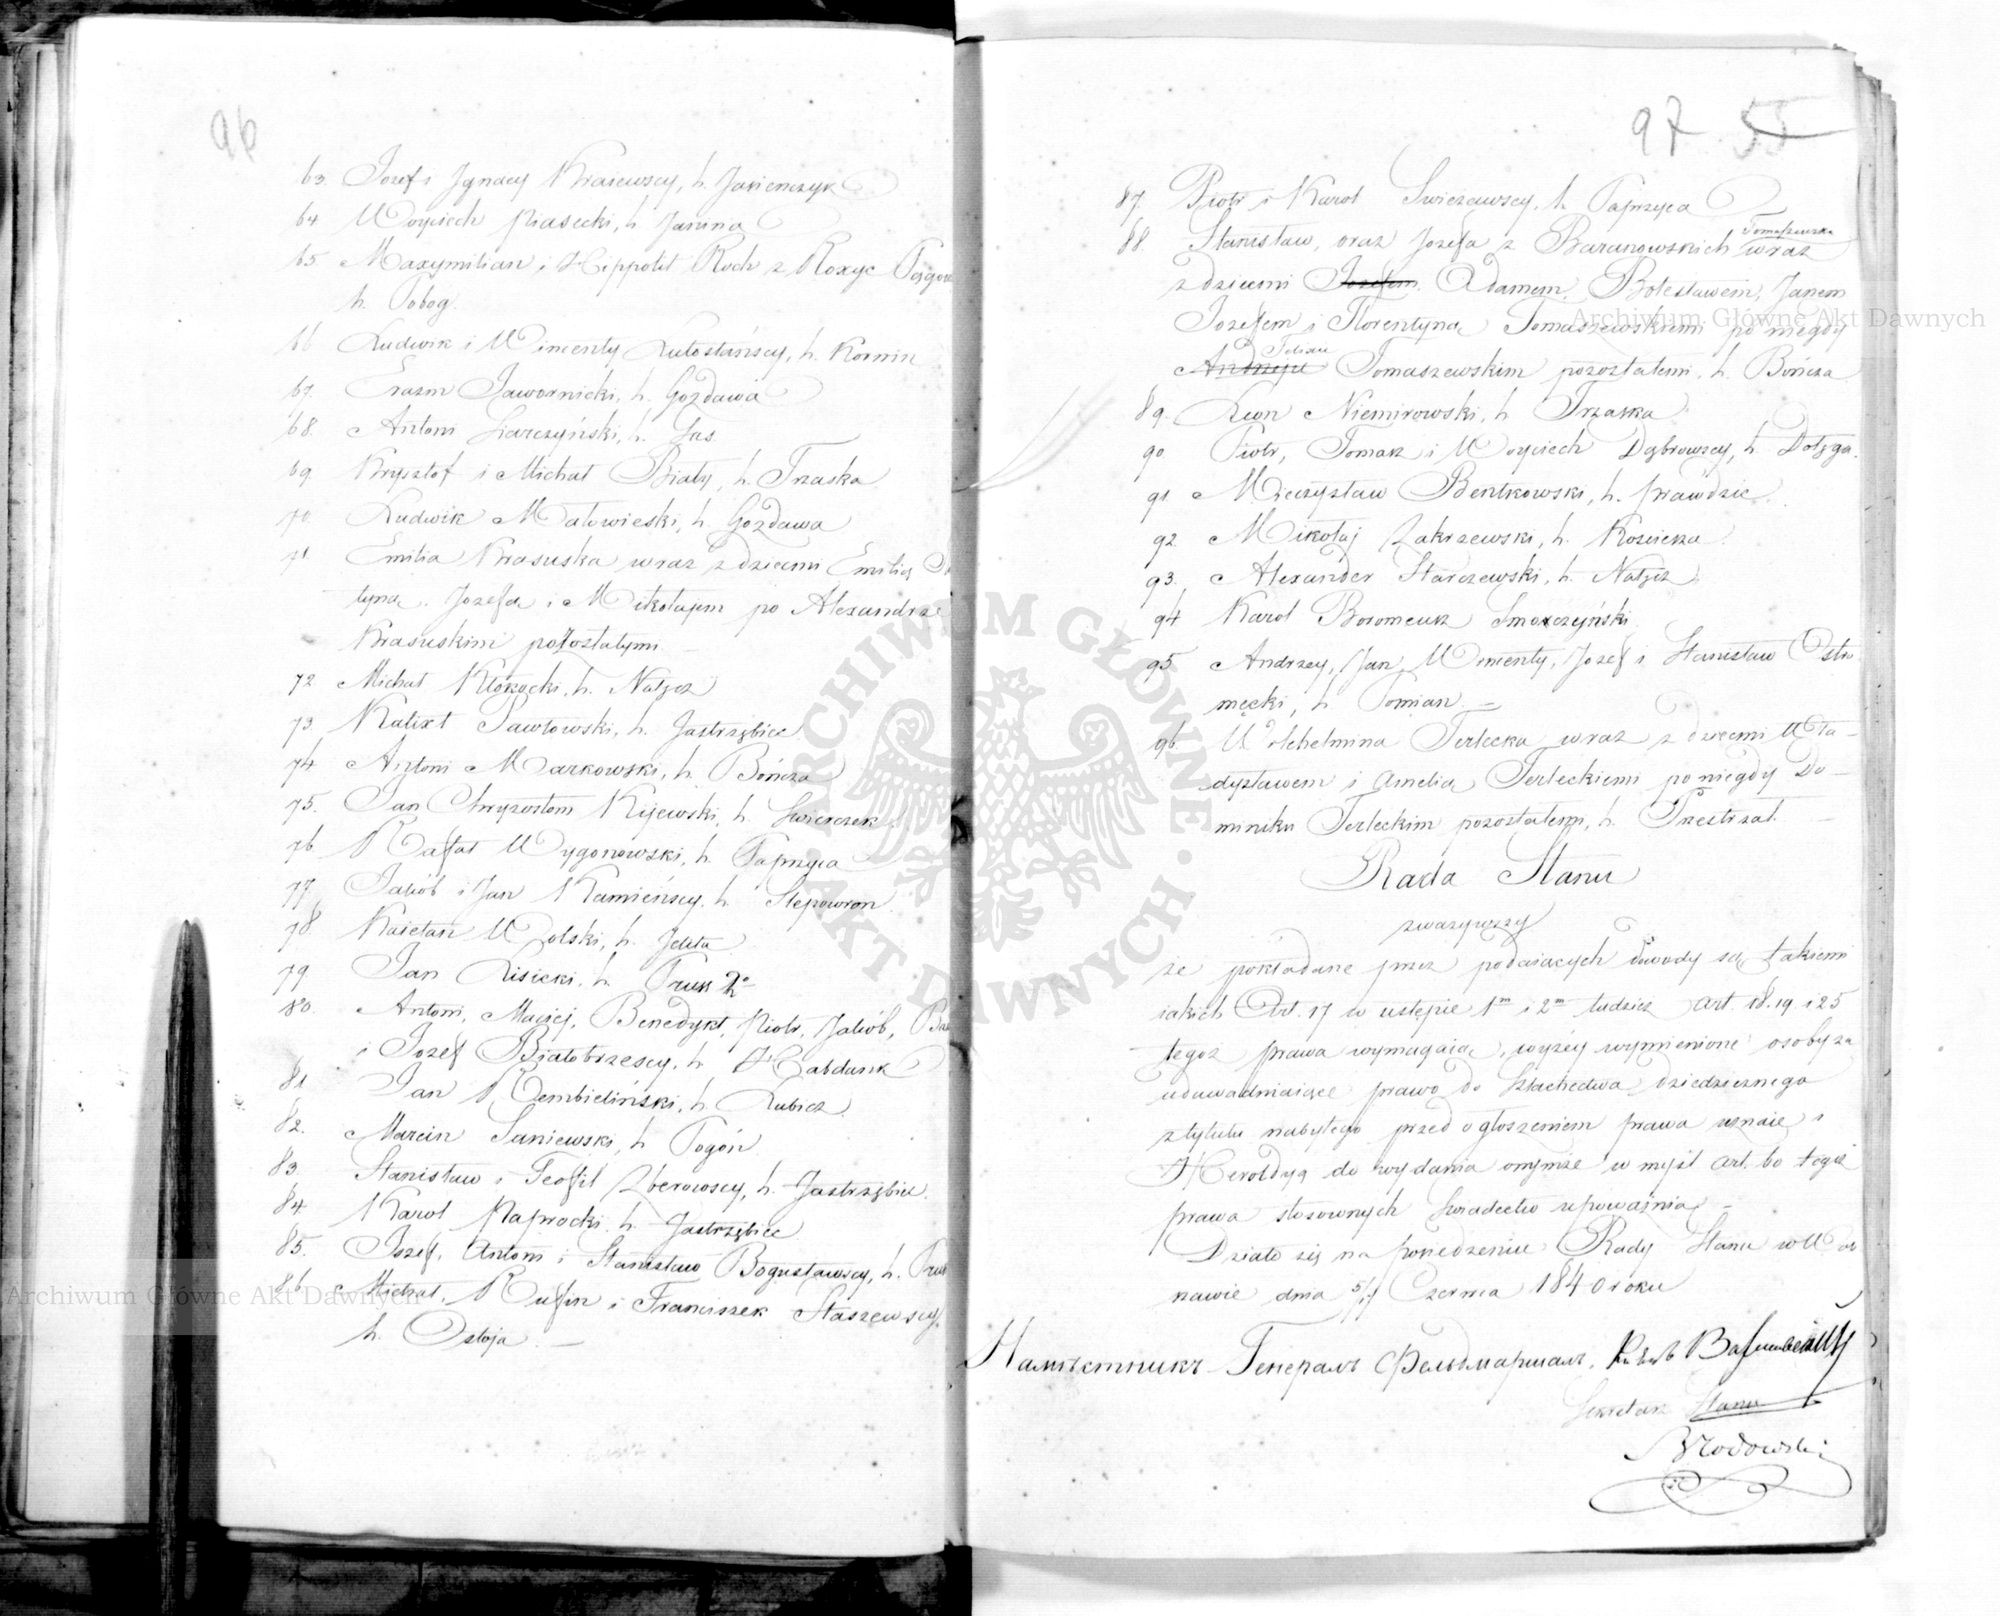 96
63. Jozef i Jgnacy Kraiewscy, h. Jasieńczyk
64 Woyciech Piasecki, h. Janina
65. Maxymilian i Hippolit Roch z Roxyc
h. Pobog.
66 Ludwik i Wincenty Lutostańscy, h. Kornin
67. Erazm Jawornicki, h. Gozdawa
68. Antoni Siarczyński, h. Sas.
69. Krysztof i Michał Biały, h. Trzaska
70. Ludwik Małowieski, h. Gozdawa
71 Emilia Krasuska wraz z dziećmi Emilią
tyną, Jozefą i Mikołajem po Alexandrze
Krasuskim pozostałymi
72 Michał Kłokocki, h. Nałęcz
73. Kalixt Pawłowski, h. Jastrzębiec
74 Antoni Markowski, h. Bończa
75. Jan Chryzostom Kijewski, h. Swierczek
76 Rafał Wygonowski, h. Paprzyca
77. Jakób i Jan Kamieńscy, h. Slepowron
78. Kaietan Wolski, h. Jelita
79 Jan Lisiecki, h. Prus 2o
80. Antoni, Maciej, Benedykt, Piotr, Jakób,
i Jozef Białobrzescy, h. Habdank
81 Jan Rembieliński, h. Lubicz
82. Marcin Saniewski, h Pogoń
83 Stanisław i Teofil Zberowscy, h. Jastrzębiec.
84. Karol Paprocki h. Jastrzębiec
85. Jozef, Antoni i Stanisław Bogusławscy, h. Prus
86. Michał, Rufin i Franciszek Staszewscy,
h. Ostoja. —
97 55
87. Piotr i Karol Swieżawscy, h. Paprzyca
88. Stanisław, oraz Jozefa z Baranowskich Tomaszewska wraz
z dziećmi Jozefem, Adamem, Bolesławem, Janem
Jozefem i Florentyną Tomaszewskiemi po niegdy
Andrzeju Felixie Tomaszewskim pozostałemi, h. Bończa
89. Leon Niemirowski, h. Trzaska.
90 Piotr, Tomasz i Woyciech Dąbrowscy, h. Dołęga.
91. Mieczysław Bentkowski, h. Prawdzic.
92. Mikołaj Zakrzewski, h. Kościesza
93. Alexander Starczewski, h. Nałęcz
94 Karol Boromeusz Smoczyński
95 Andrzey, Jan, Wincenty, Jozef i Stanisław Ostro
męcki, h. Pomian. —
96. Wilchelmina Terlecka wraz z dziećmi Wła-
dysławem i Amelią Terleckiemi po niegdy Do-
miniku Terleckim pozostałemi, h. Przestrzał. —
Rada Stanu
zważywszy
że pokładane przez podaiących dowody są takiemi
iakich Art. 17 w ustępie 1m i 2m tudzież Art. 18. 19. i 25
tegoż prawa wymagaią, wyżey wymienione osoby za
udowadniaiące prawo do Szlachectwa dziedzicznego
z tytułu nabytego przed ogłoszeniem prawa uznaie i
Heroldyą do wydania onymże w myśl Art. 60 tegoż
prawa stosownych Swiadectw upoważnia, —
Działo się na posiedzeniu Rady Stanu w War
szawie dnia 5/17 Czerwca 1840 roku
Намѣстникъ Генералъ Фельдмаршалъ, Князь Варшавскій
Sekretarz Stanu
Brodowski
Archiwum Główne Akt Dawnych
ARCHIWUM GŁÓWNE · AKT DAWNYCH ·
Archiwum Główne Akt Dawnych